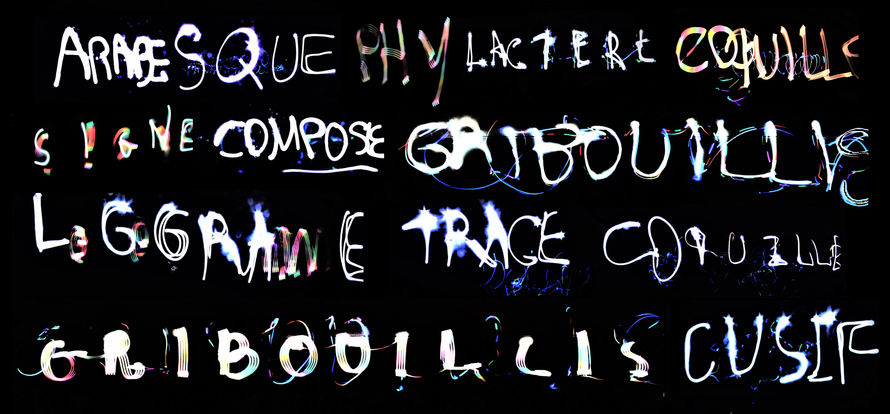 ARABESQUE PHYLACTERE COQUILLE
SIGNE COMPOSE GRIBOUILLIS
LOGOGRAMME TRACE COQUILLE
GRIBOUILLIS CUSIF